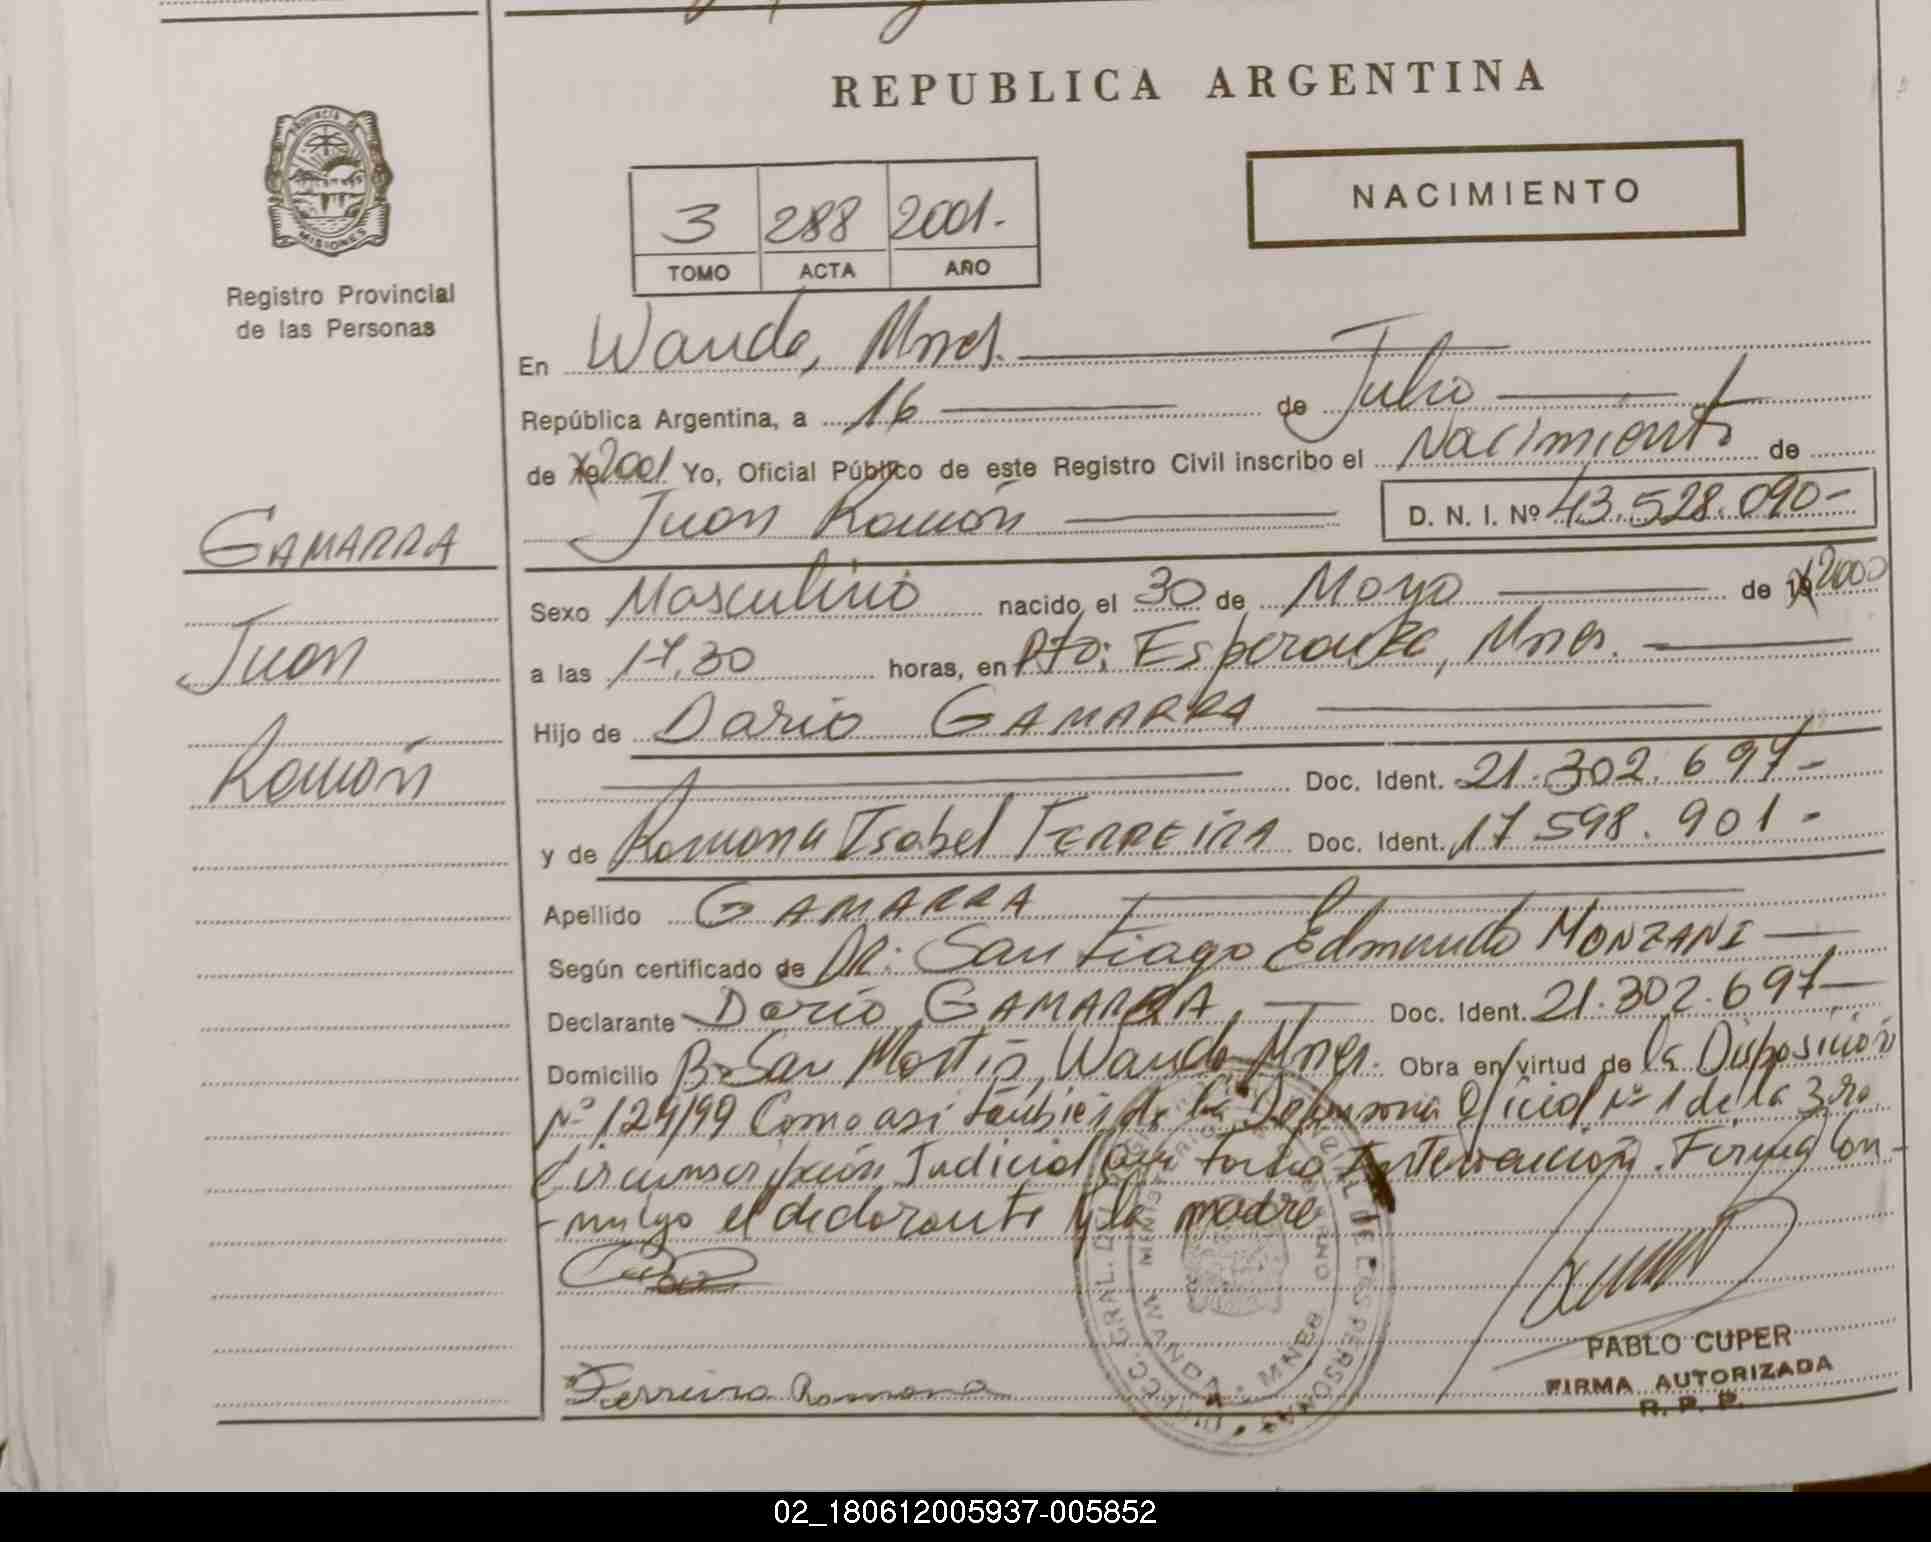 REPUBLICA ARGENTINA
PROVINCIA DE
MISIONES
Registro Provincial
de las Personas
NACIMIENTO
3 288 2001.-
TOMO ACTA AÑO
En Wanda, Mnes.
República Argentina, a 16 de Julio
de 2001 Yo, Oficial Público de este Registro Civil inscribo el Nacimiento de
Juan Ramón D. N. I. Nº 43.528.090-
GAMARRA
Juan
Ramón
Sexo Masculino nacido el 30 de Mayo de 2000
a las 17,30 horas, en Pto: Esperanza, Mnes.
Hijo de Dario GAMARRA
Doc. Ident. 21.302.697-
y de Ramona Isabel FERREIRA Doc. Ident. 17.598.901-
Apellido GAMARRA
Según certificado de DR: Santiago Edmundo MONZANI
Declarante Dario GAMARRA, Doc. Ident. 21.302.697-
Domicilio Bº San Martin, Wanda Mnes. Obra en virtud de la Disposición
Nº 129/99 Como asi también de la Defensoria Oficial Nº 1 de la 3ra.
Circunscripción Judicial que tomo Intervención. Firma Con-
-migo el declarante y la madre
Ferreira Ramona
PABLO CUPER
FIRMA AUTORIZADA
R. P. P.
02_180612005937-005852